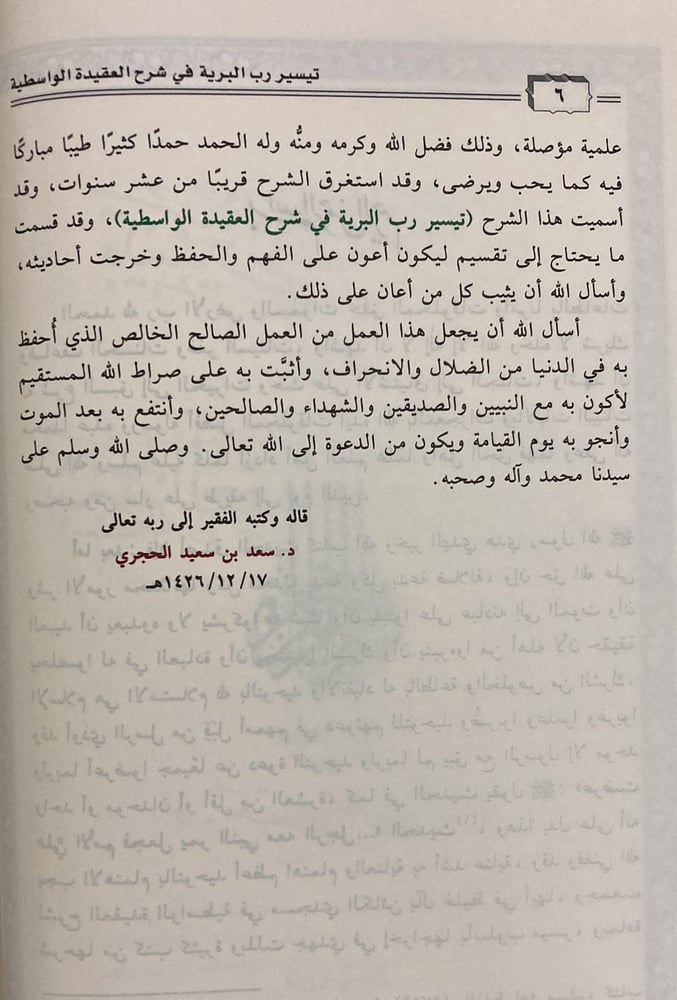 تيسير رب البرية في شرح العقيدة الواسطية
٦
علمية مؤصلة، وذلك فضل الله وكرمه ومنُّه وله الحمد حمدًا كثيرًا طيبًا مباركًا
فيه كما يحب ويرضى، وقد استغرق الشرح قريبًا من عشر سنوات، وقد
أسميت هذا الشرح (تيسير رب البرية في شرح العقيدة الواسطية)، وقد قسمت
ما يحتاج إلى تقسيم ليكون أعون على الفهم والحفظ وخرجت أحاديثه،
وأسأل الله أن يثيب كل من أعان على ذلك.
أسأل الله أن يجعل هذا العمل من العمل الصالح الخالص الذي أُحفظ
به في الدنيا من الضلال والانحراف، وأثبَّت به على صراط الله المستقيم
لأكون به مع النبيين والصديقين والشهداء والصالحين، وأنتفع به بعد الموت
وأنجو به يوم القيامة ويكون من الدعوة إلى الله تعالى. وصلى الله وسلم على
سيدنا محمد وآله وصحبه.
قاله وكتبه الفقير إلى ربه تعالى
د. سعد بن سعيد الحجري
١٤٢٦/١٢/١٧هـ